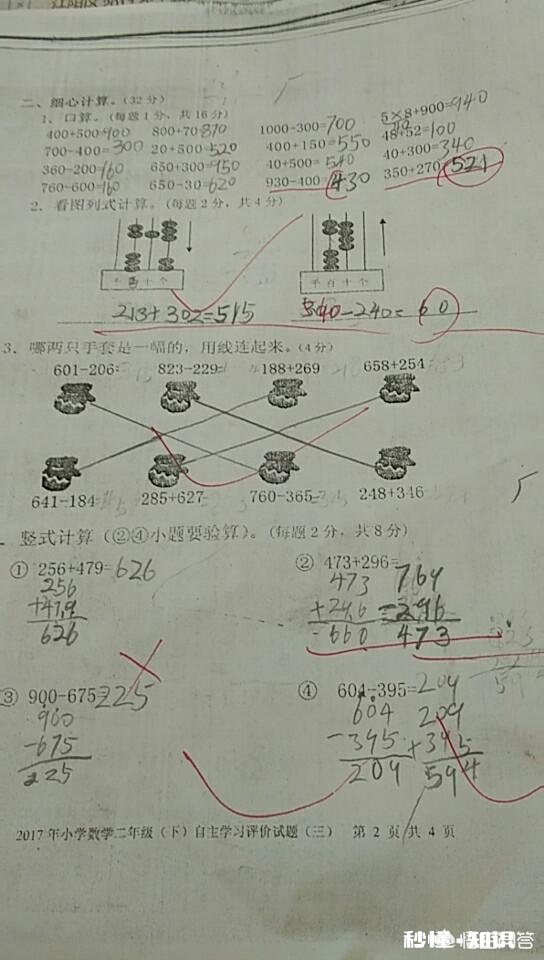 二、细心计算。(32分)
1、口算。(每题1分，共16分)
400+500=900 800+70=870 1000-300=700 5×8+900=940
700-400=300 20+500=520 400+150=550 48+52=100
360-200=160 650+300=950 40+500=540 40+300=340
760-600=160 650-30=620 930-400=430 350+270=521
2、看图列式计算。(每题2分，共4分)
千百十个 千百十个
213+302=515 340-240=60
3、哪两只手套是一幅的，用线连起来。(4分)
601-206= 823-229= 188+269 658+254
641-184= 285+627= 760-365= 248+346
竖式计算（②④小题要验算）。(每题2分，共8分)
① 256+479=626 ② 473+296=
256 473 769
+479 +296 -296
626 660 473
③ 900-675=225 ④ 604-395=209
900 604 209
-675 -395 +395
225 209 594
2017年小学数学二年级（下）自主学习评价试题（三） 第 2 页 共 4 页
秒懂+知识